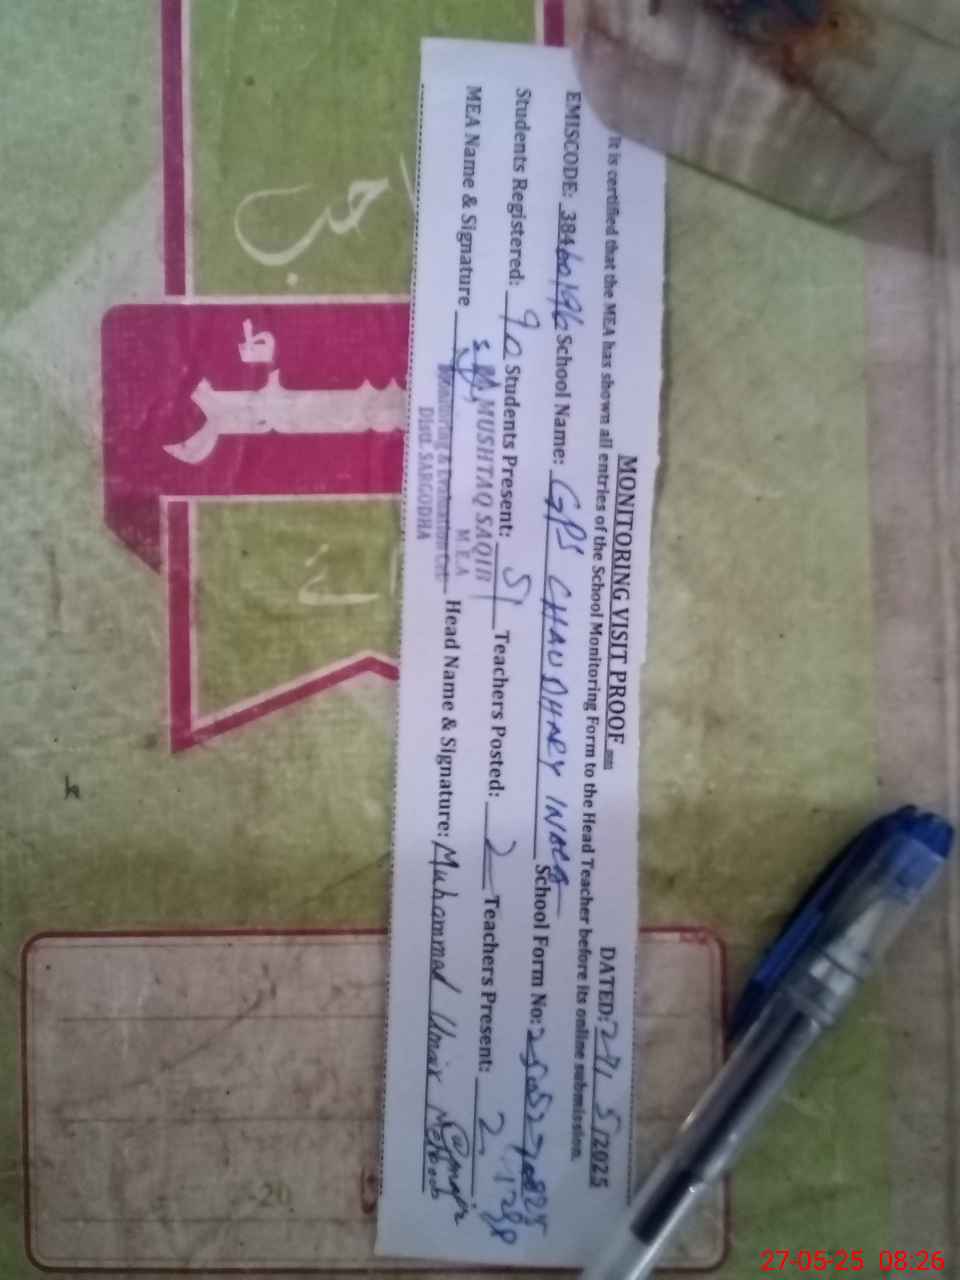 MONITORING VISIT PROOF
DATED: 27/5/2025
It is certified that the MEA has shown all entries of the School Monitoring Form to the Head Teacher before its online submission.
EMISCODE: 38460196 School Name: GPS CHAUDHARY School Form No:
Students Registered: 90 Students Present: 51 Teachers Posted: 2 Teachers Present: 2
MEA Name & Signature Head Name & Signature: Muhammad Umair
MUSHTAQ SAQIB
M.E.A
Monitoring & Evaluation
Distt. SARGODHA
27-05-25 08:26